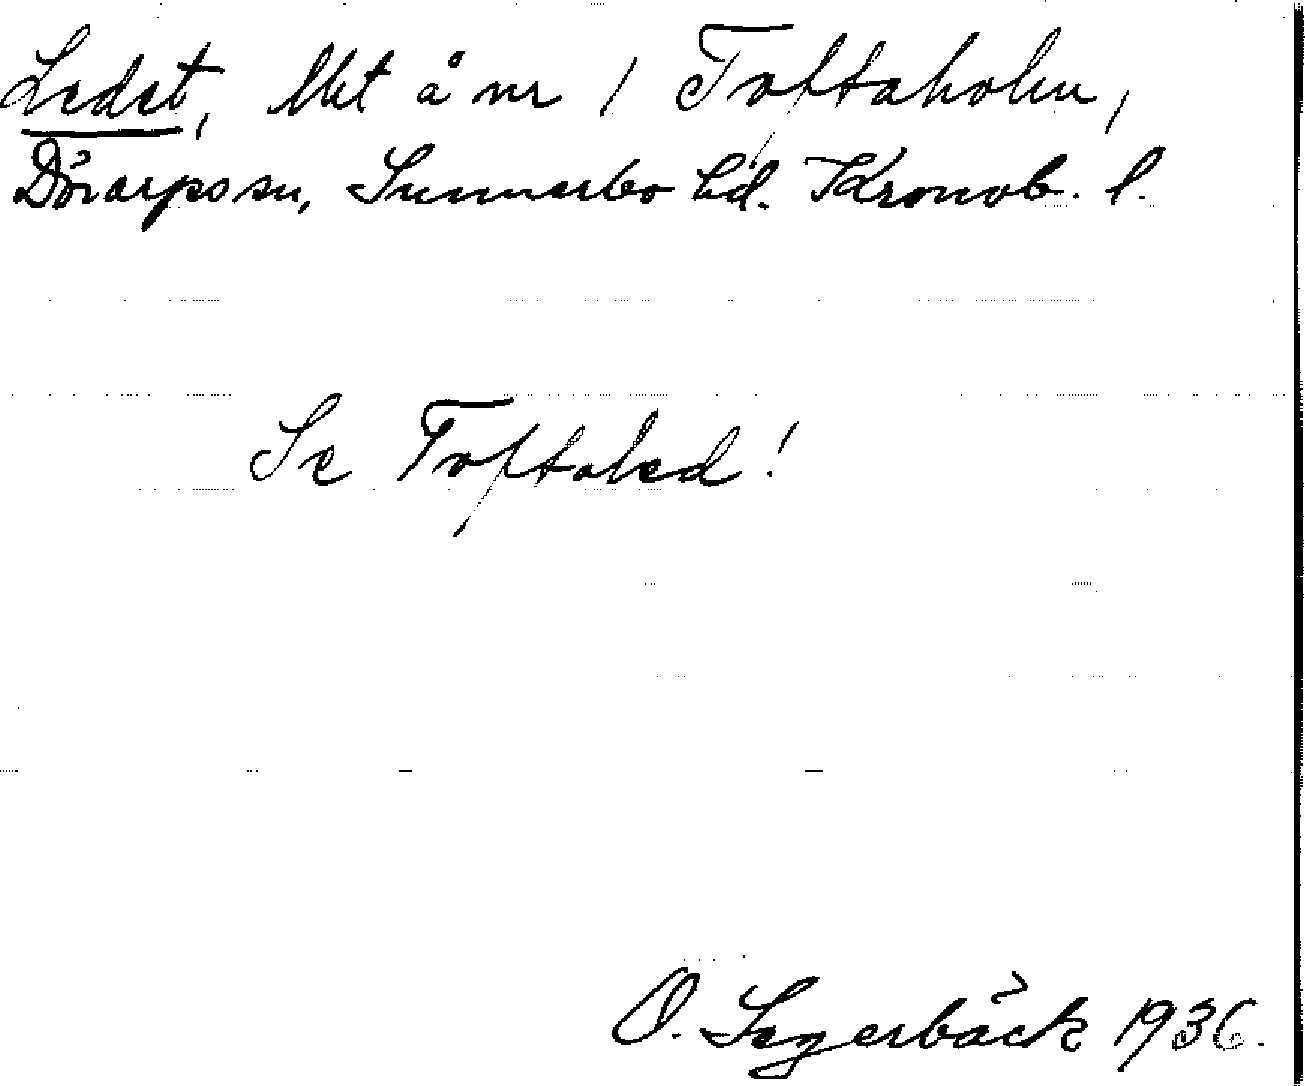 Ledet, Mt å nr 1 Toftaholm,
Dörarps sn, Sunnerbo hd. Kronob. l.
Se Toftaled!
O. Segerbäck 1936.